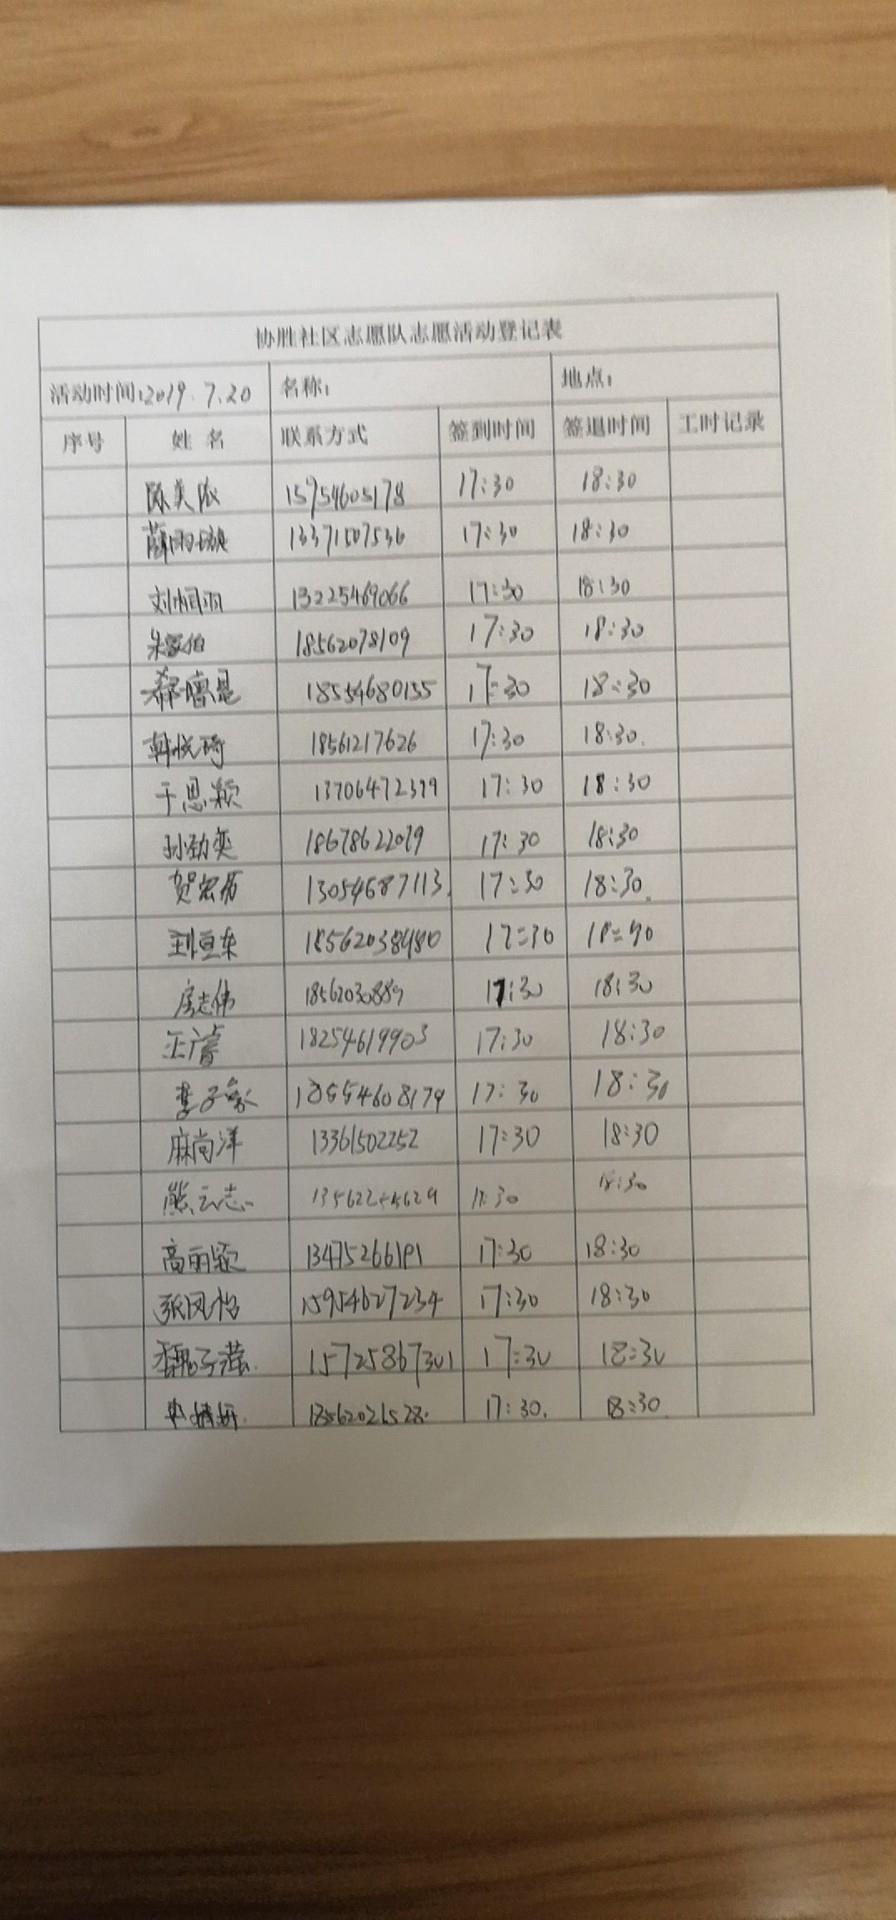 协胜社区志愿队志愿活动登记表
活动时间:2019.7.20 名称: 地点:
序号 姓名 联系方式 签到时间 签退时间 工时记录
陈美依 15954605178 17:30 18:30
薛雨璇 13371507536 17:30 18:30
刘恒羽 13225469066 17:30 18:30
朱家伯 18562078109 17:30 18:30
18554680155 17:30 18:30
韩悦琦 18561217626 17:30 18:30.
于思颖 13706472399 17:30 18:30
孙劲奕 18678622079 17:30 18:30
贺宏历 13054687113. 17:30 18:30.
18562038480 17:30
房志伟 18562030889 17:30 18:30
18254619903 17:30 18:30
李子象 18554608179 17:30 18:30
麻尚洋 13361502252 17:30 18:30
熊云志 18:30
高丽颖 17:30 18:30
张凤怡 15954627234 17:30 18:30
魏子莹. 15725867301 17:30 18:30
17:30. 18:30.